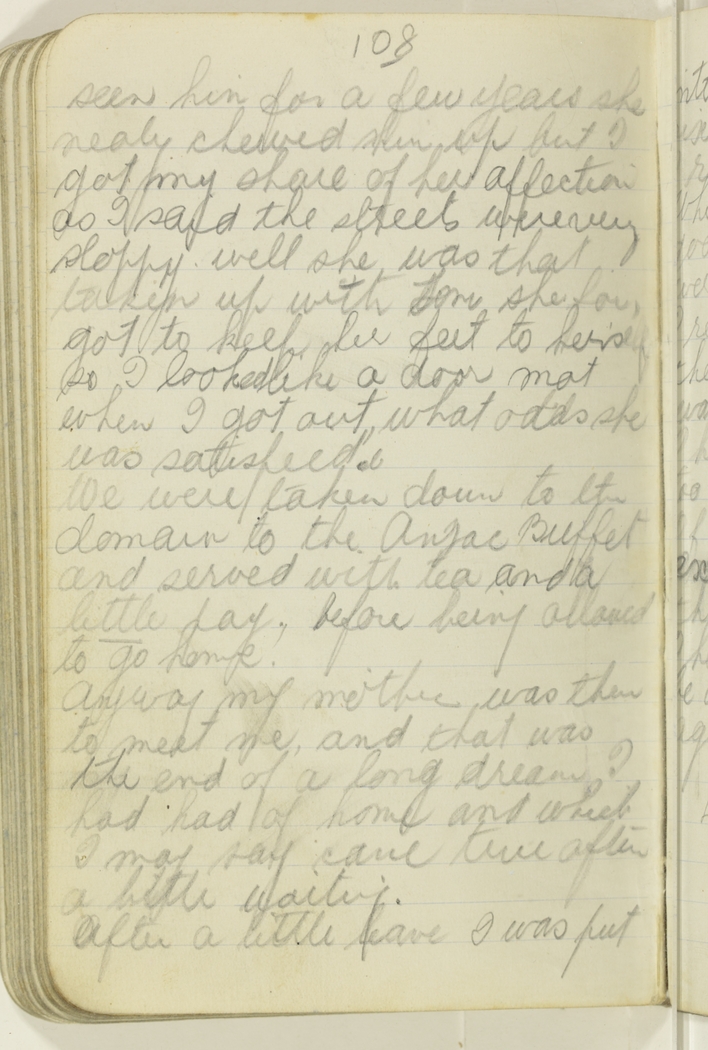 108
seen him for a few years she
nealy chewed him up but I
got my share of her affection
as I said the streets were very
sloppy. well she was that
taken up with Tom she for,
got to keep her feet to herself
so I looked like a door mat
when I got out, what odds she
was satisfied.
We were taken down to the
domain to the Anzac Buffet
and served with tea and a
little pay, before being allowed
to go home.
Anyway my mother was there
to meet me, and that was
the end of a long dream I
had had of home and which
I may say came true after
a little waiting.
After a little leave I was put